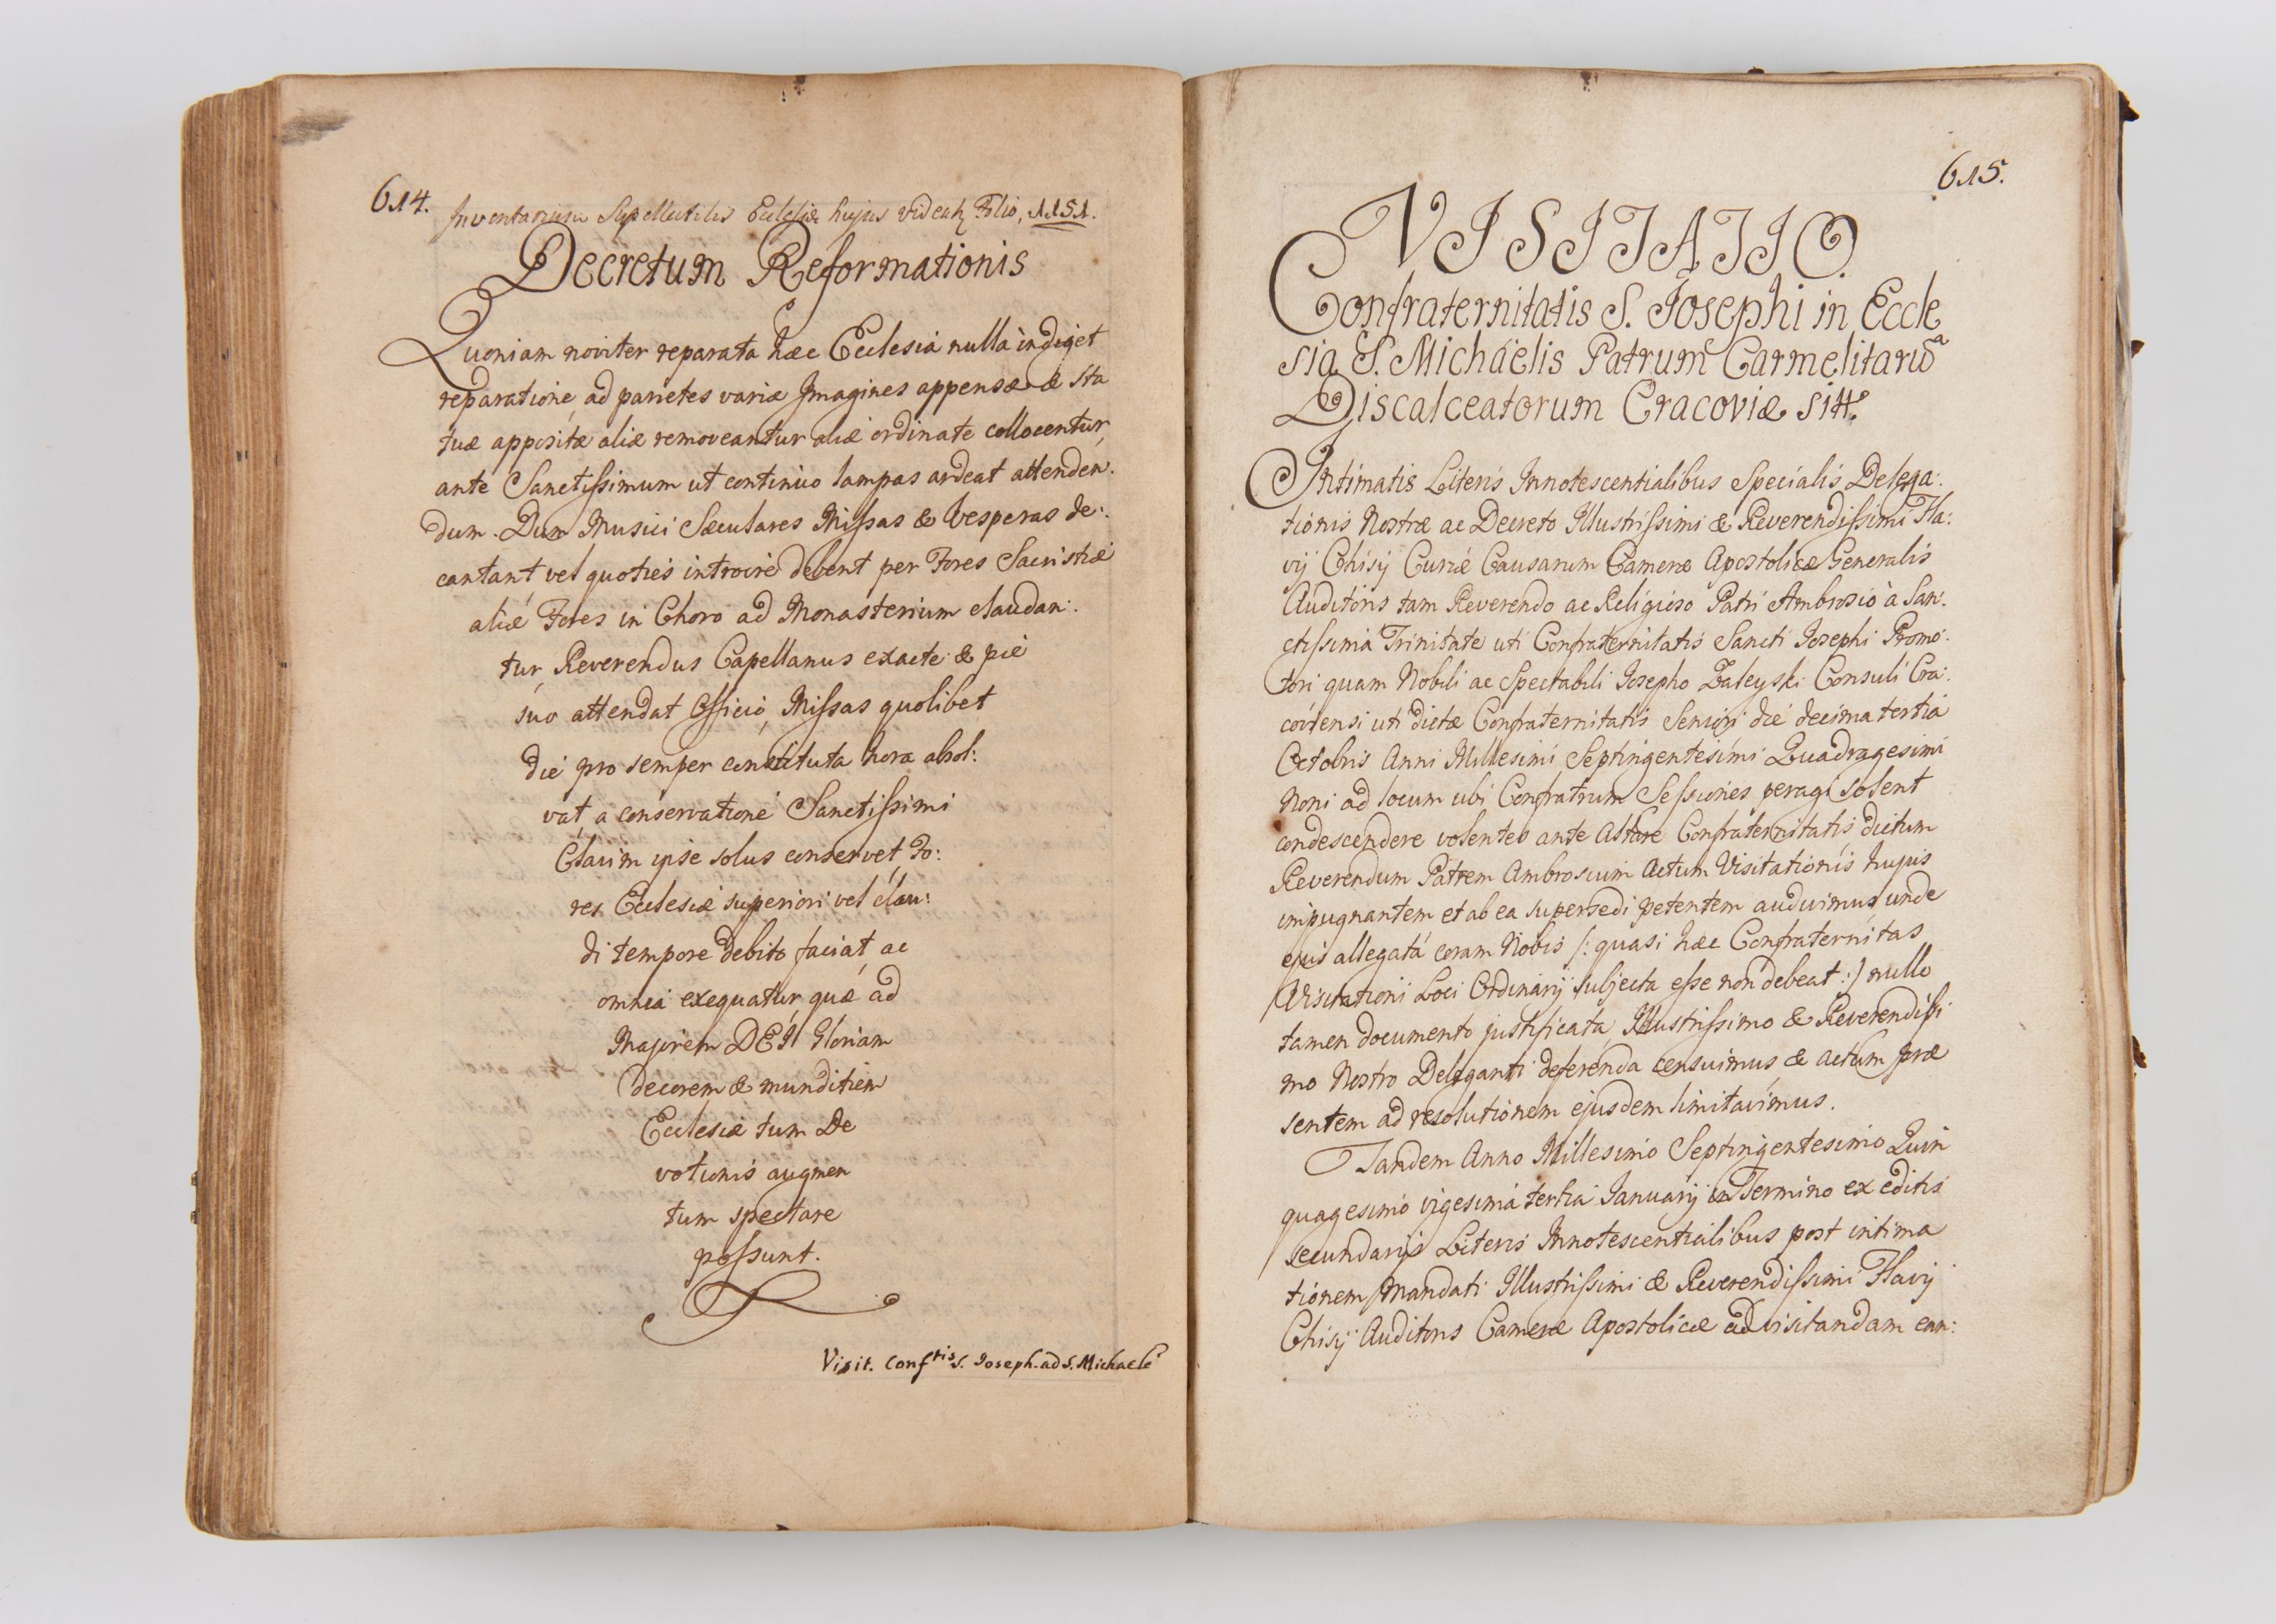 614.
Inventarium Supellectilis Ecclesiæ hujus videatur Folio, 1151.
Decretum Reformationis
Quoniam noviter reparata hæc Ecclesia nullâ indiget
reparatione, ad parietes variæ Imagines appensæ & sta
tuæ appositæ aliæ removeantur aliæ ordinate collocentur,
ante Sanctissimum ut continuo lampas ardeat attenden:
dum. Dum Musici Sæculares Missas & Vesperas de:
cantant, vel quoties introire debent per Fores Sacristiæ
aliæ Fores in Choro ad Monasterium claudan:
tur, Reverendus Capellanus exacte & pie
suo attendat Officio, Missas quolibet
die pro semper constituta hora absol:
vat, a conservatione Sanctissimi
Clavim ipse solus conservet, Fo:
res Ecclesiæ superiori vel clau:
di tempore debito faciat, ac
omnia exequatur quæ ad
Majorem DEI Gloriam
decorem & munditiem
Ecclesiæ tum De
votionis augmen
tum spectare
possunt.
Visit. Conf<sup>tis</sup> S. Joseph. ad S. Michaelē
615.
VISITATIO
Confraternitatis S. Josephi in Eccle
sia S. Michäelis Patrum Carmelitarū
Discalceatorum Cracoviæ sitt.
Intimatis Literis Innotescentialibus Specialis Delega:
tionis Nostræ ac Decreto Illustrissimi & Reverendissimi Fla:
vij Chisij Curiæ Causarum Cameræ Apostolicæ Generalis
Auditoris tam Reverendo ac Religioso Patri Ambrosio à San:
ctissima Trinitate uti Confraternitatis Sancti Josephi Promo:
tori quam Nobili ac Spectabili Josepho Zaleyski Consuli Cra:
coviensi uti dictæ Confraternitatis Seniori die decima tertia
Octobris Anni Millesimi Septingentesimi Quadragesimi
Noni ad locum ubi Confratrum Sessiones peragi solent
condescendere volentes ante Altare Confraternitatis dictum
Reverendum Patrem Ambrosium Actum Visitationis hujus
impugnantem et ab ea supersedi petentem audivimus, unde
ejus allegatâ coram Nobis /: quasi hæc Confraternitas
Visitationi Loci Ordinarij subjecta esse non debeat :/ nullo
tamen documento justificata, Illustrissimo & Reverendissi
mo Nostro Deleganti deferenda censuimus & actum præ
sentem ad resolutionem ejusdem limitavimus.
Tandem Anno Millesimo Septingentesimo Quin
quagesimo vigesima tertia Januarij in Termino ex editis
secundarijs Literis Innotescentialibus post intima
tionem Mandati Illustrissimi & Reverendissimi Flavij
Chisij Auditoris Cameræ Apostolicæ ad visitandam ean: